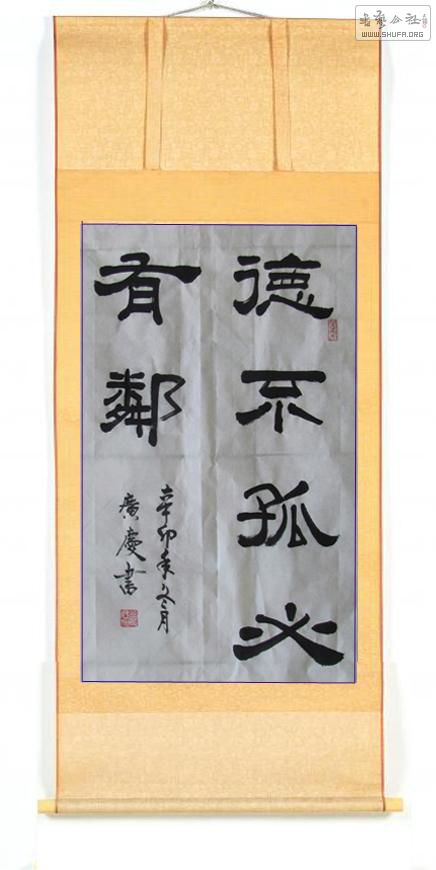 德不孤必
有鄰
辛卯年冬月
廣慶書
書藝公社
WWW.SHUFA.ORG